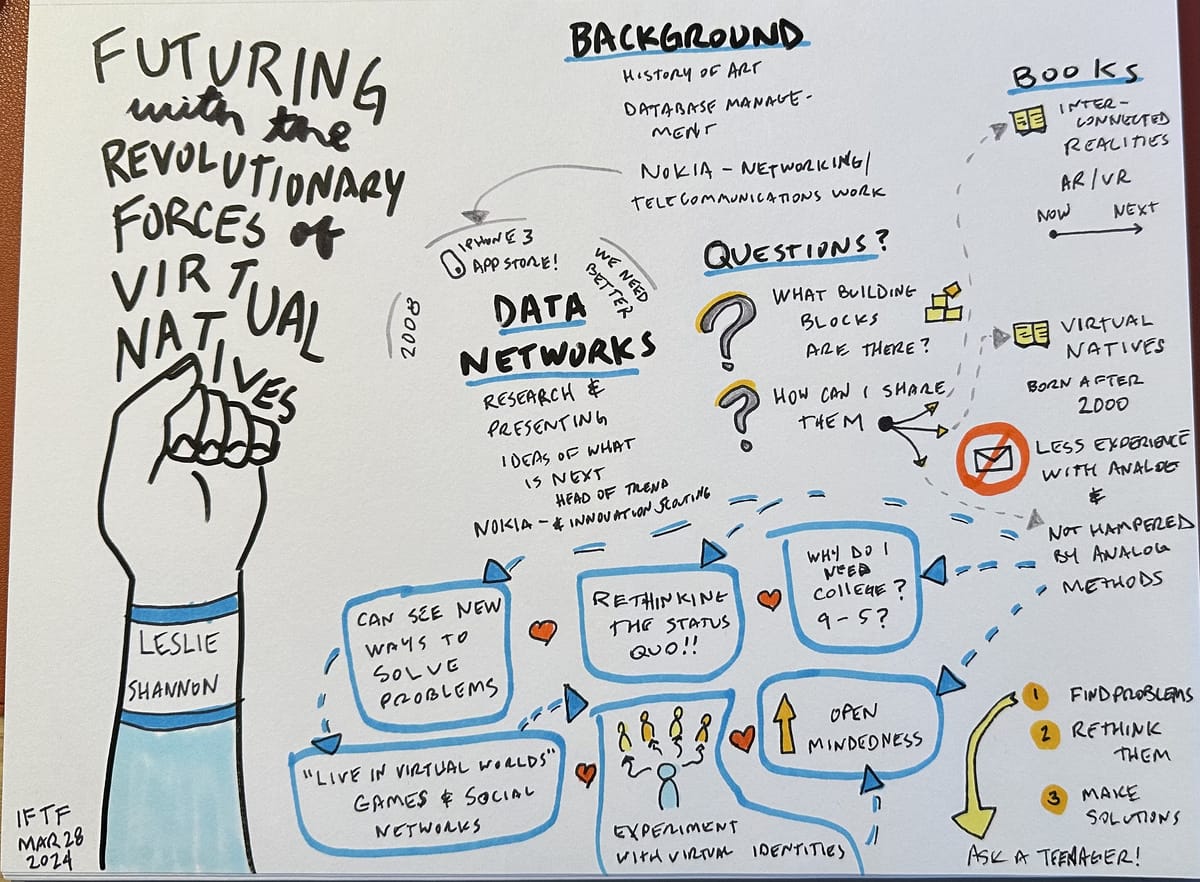 FUTURING
with the
REVOLUTIONARY
FORCES of
VIRTUAL
NATIVES
LESLIE
SHANNON
IFTF
MAR 28
2024
BACKGROUND
HISTORY OF ART
DATABASE MANAGE-
MENT
NOKIA - NETWORKING/
TELECOMMUNICATIONS WORK
IPHONE 3
APP STORE!
2008
WE NEED
BETTER
DATA
NETWORKS
RESEARCH &
PRESENTING
IDEAS OF WHAT
IS NEXT
HEAD OF TREND
NOKIA - & INNOVATION SCOUTING
QUESTIONS?
?
WHAT BUILDING
BLOCKS
ARE THERE?
?
HOW CAN I SHARE
THEM
BOOKS
INTER-
CONNECTED
REALITIES
AR/VR
NOW NEXT
VIRTUAL
NATIVES
BORN AFTER
2000
LESS EXPERIENCE
WITH ANALOG
&
NOT HAMPERED
BY ANALOG
METHODS
WHY DO I
NEED
COLLEGE?
9-5?
RETHINKING
THE STATUS
QUO!!
CAN SEE NEW
WAYS TO
SOLVE
PROBLEMS
"LIVE IN VIRTUAL WORLDS"
GAMES & SOCIAL
NETWORKS
EXPERIMENT
WITH VIRTUAL IDENTITIES
OPEN
MINDEDNESS
1 FIND PROBLEMS
2 RETHINK
THEM
3 MAKE
SOLUTIONS
ASK A TEENAGER!